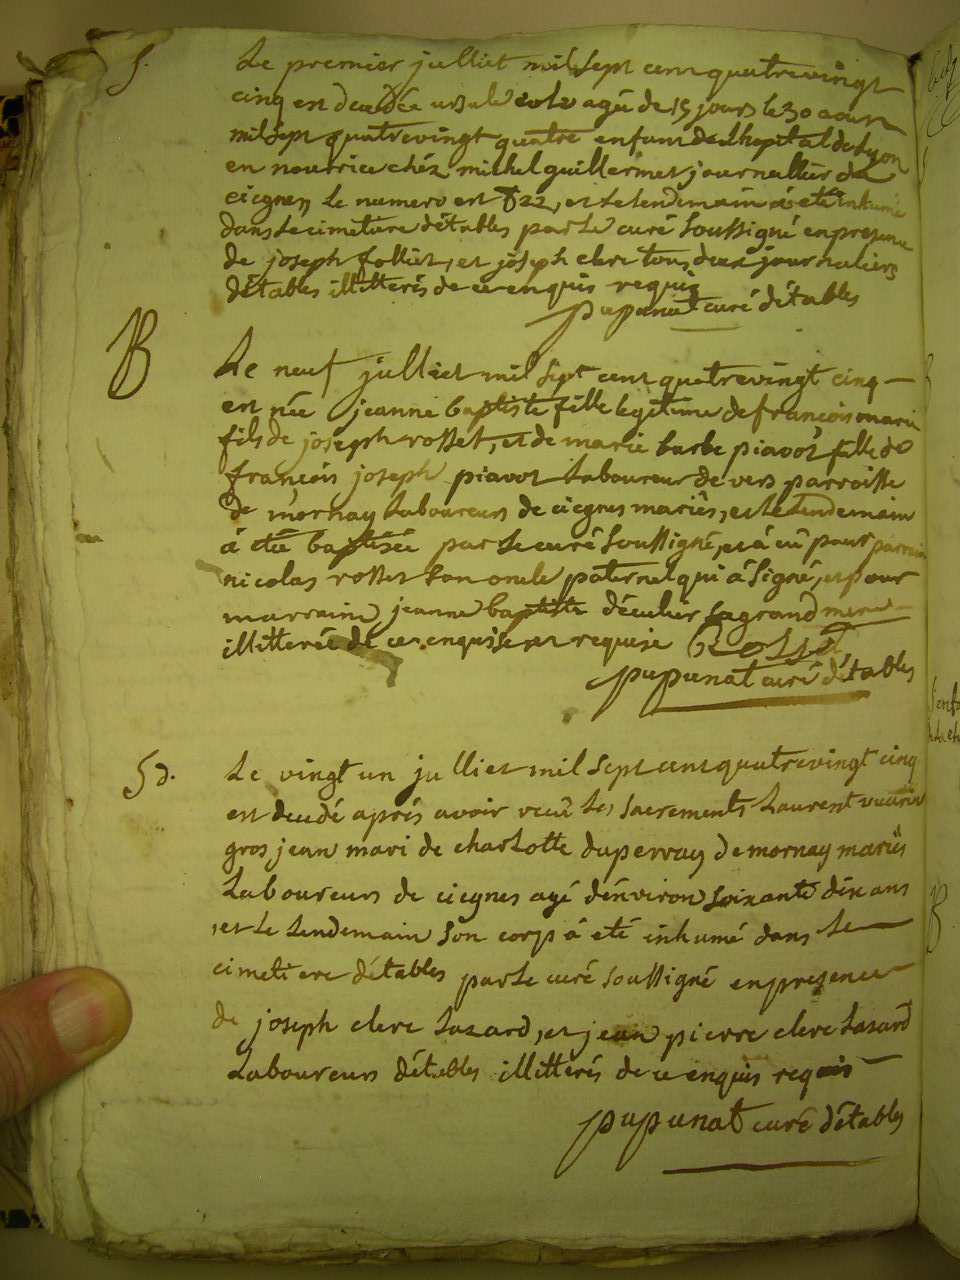 S.
Le premier julliet mil sept cent quatrevingt
cinq est decedée ursule agé de 15 jours le 30 aoust
mil sept quatrevingt quatre enfant de l'hopital de Lyon
en nourrice chéz michel guillermet journallier de
ciegnes Le numero est 822, et Le lendemain à eté inhumé
dans Le cimetiere détables par Le curé soussigné en presence
de joseph folliet, et joseph clerc tous deux journaliers
détables illitterés de ce enquis requis
pupunat curé détables
B
Le neuf julliet mil sept cent quatrevingt cinq
est née jeanne baptiste fille legitime de françois marie
fils de joseph rosset, et de marie barbe piavot fille de
françois joseph piavot Laboureur de vers parroisse
de mornay Laboureurs de ciegnes mariés, et Le Lendemain
à eté baptisée par Le curé soussigné, et à eû pour parrain
nicolas rosset son oncle paternel qui à signé, et pour
marraine jeanne baptiste sa grand mere
illitterée de ce enquise et requise Rosset
pupunat curé détables
Sd.
Le vingt un julliet mil sept cent quatrevingt cinq
est decedé aprés avoir recû Les sacrements Laurent vuarin
gros jean mari de charlotte duperray de mornay mariés
Laboureurs de ciegnes agé dénviron soixante dix ans
, et Le Lendemain son corp à eté inhumé dans Le
cimetiere détables par Le curé soussigné en presence
de joseph clerc Lazard, et jean pierre clerc Lazard
Laboureurs détables illitterés de ce enquis requis
pupunat curé détables